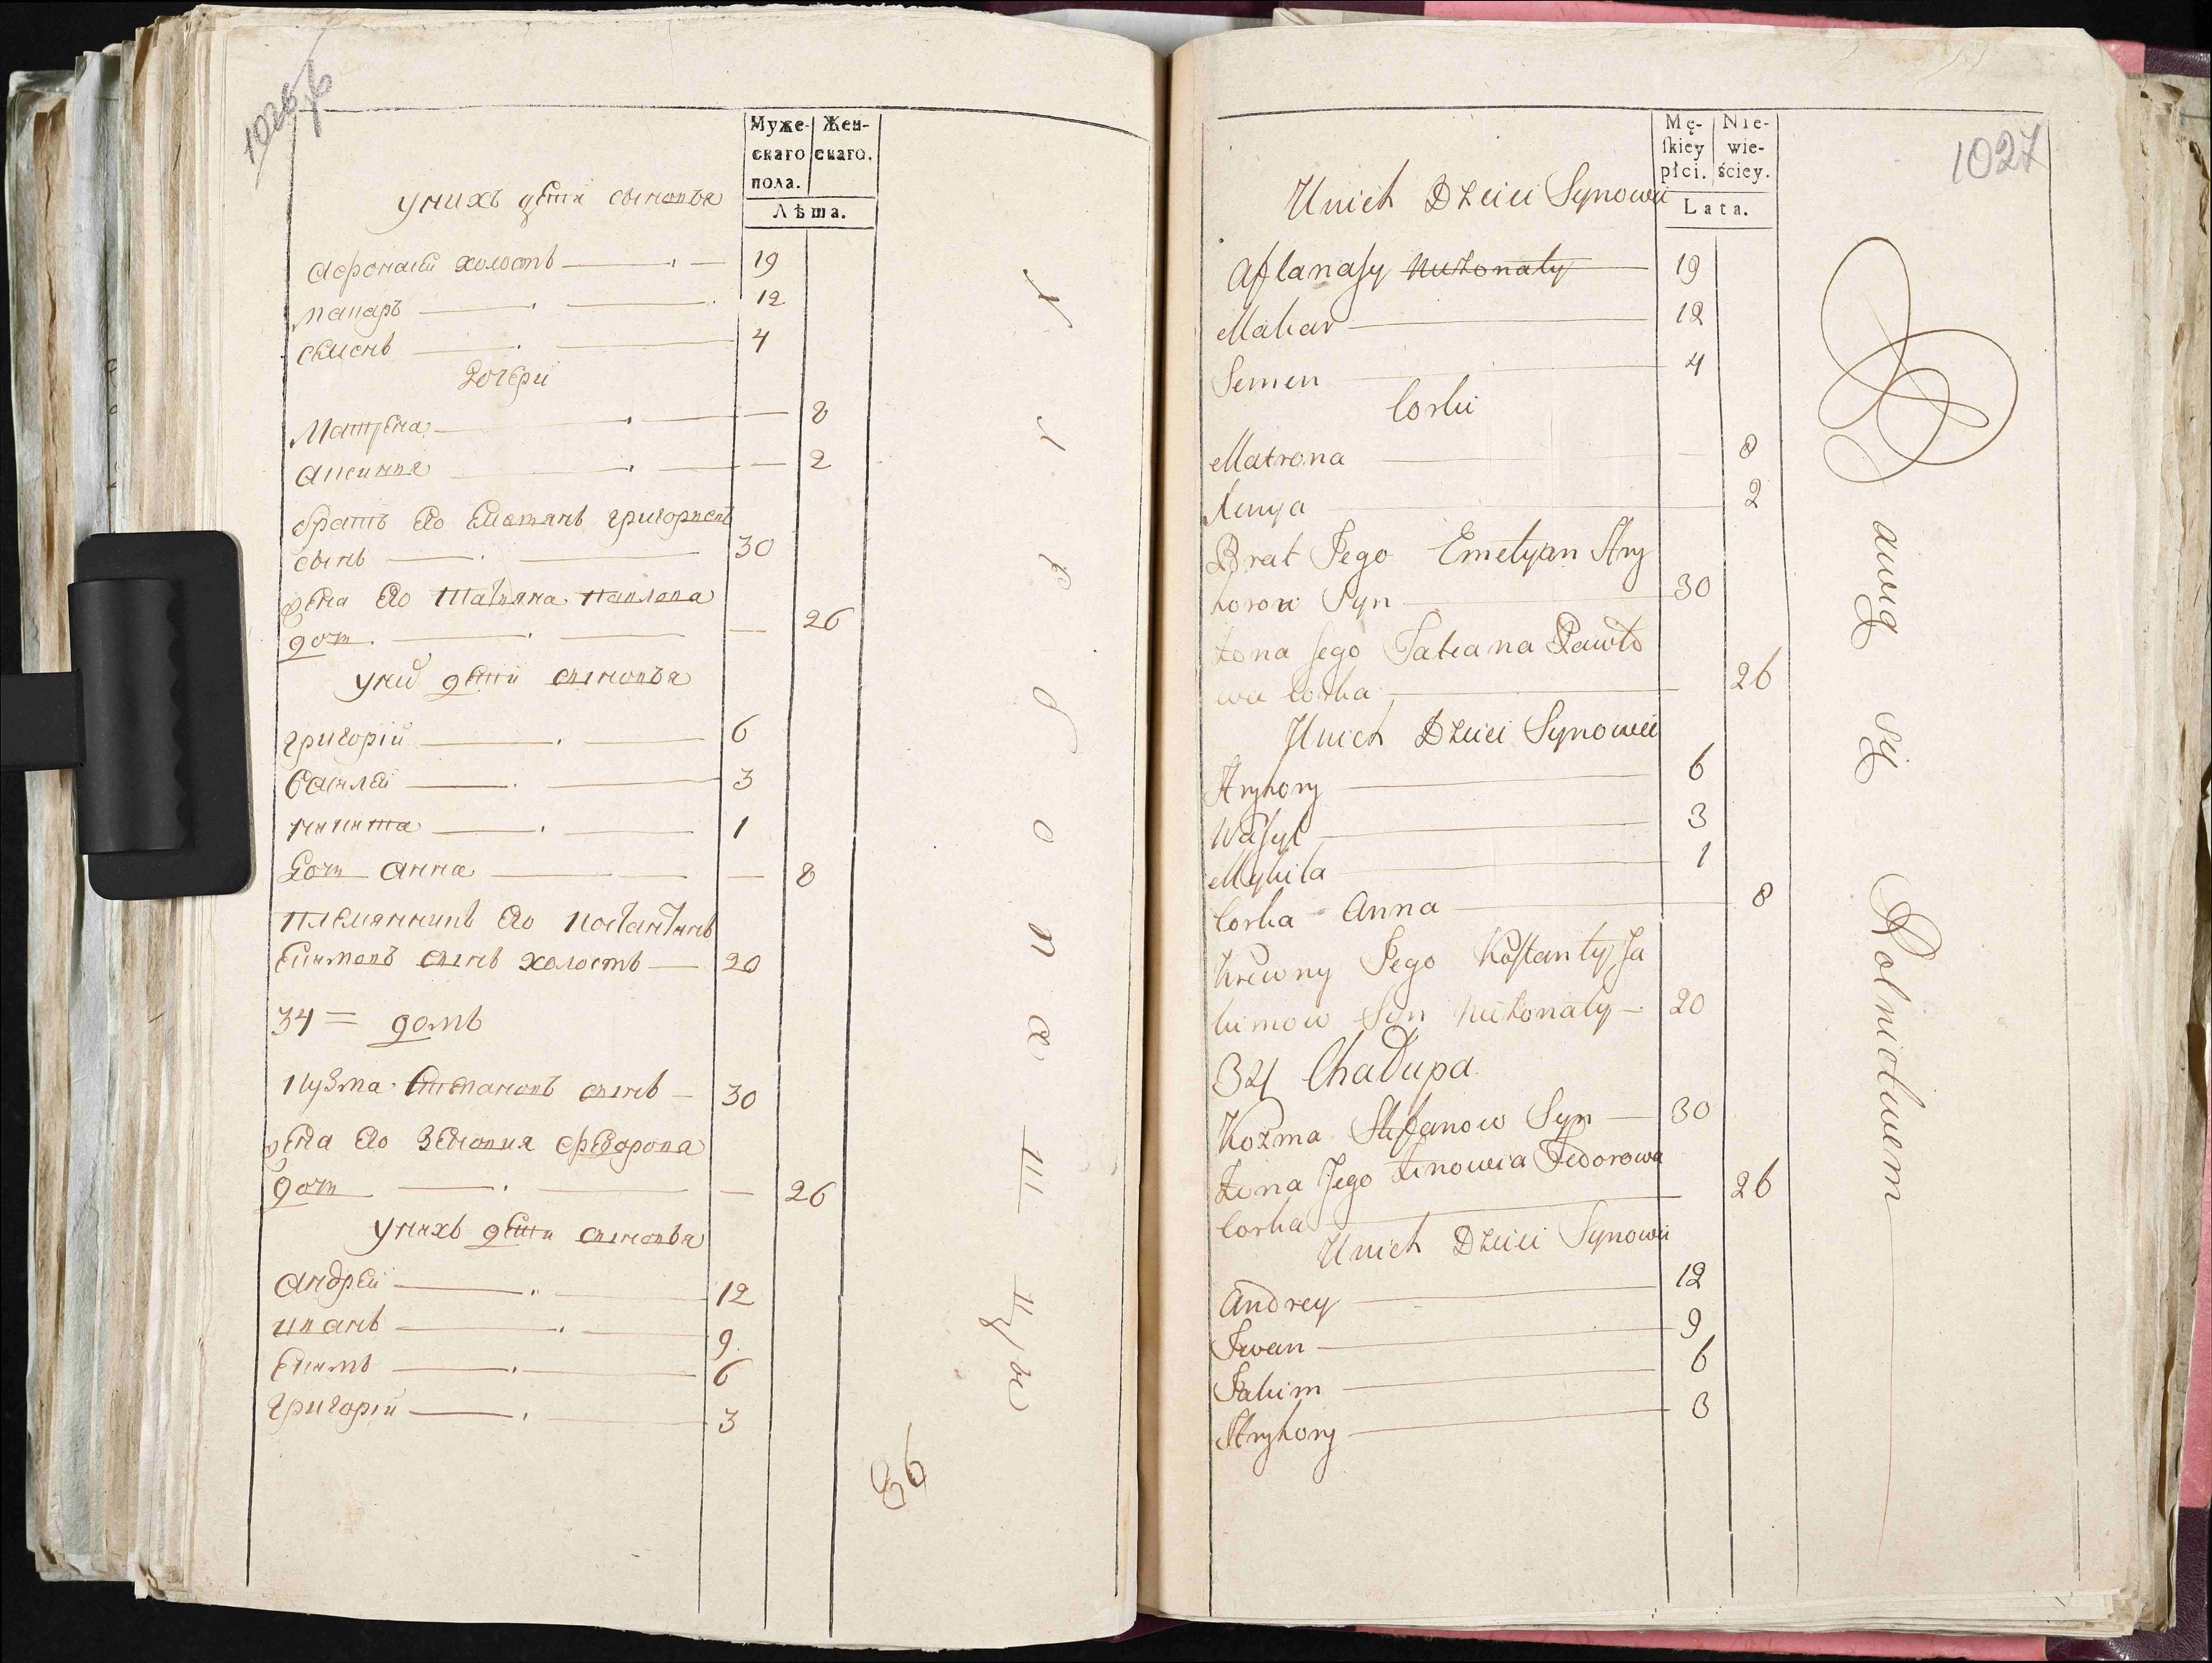 1026 б
Муже-
скаго
пола.
Жен-
скаго.
Лѣта.
унихъ дѣти сыновья
Афонасей холостъ 19
макаръ 12
семенъ 4
дочери
Матрена 8
аксиния 2
братъ его Емелянъ григорьевъ
сынъ 30
жена его татьяна павлова
доч 26
унихъ дѣти сыновья
григорій 6
василей 3
никита 1
доч анна 8
племянникъ его костантинъ
Екимовъ сынъ холостъ 20
34 = домъ
кузма степановъ сынъ 30
жена его зеновия федорова
доч 26
унихъ дѣти сыновья
андрей 12
иванъ 9
Екимъ 6
григорій 3
86
Mę-
ſkiey
płci.
Nie-
wie-
ściey.
Lata.
1027
Unich Dzieci Synowie
Aftanasy Nieżonaty 19
Makar 12
Semen 4
Corki
Matrona 8
Xenya 2
Brat Jego Emelyan Hry
horow Syn 30
Żona Jego Tatiana Pawło
wa Corka 26
Unich Dzieci Synowie
Hryhory 6
Wasyl 3
Mykita 1
Corka Anna 8
Krewny Jego Kostanty Ja
kimow Syn Nieżonaty 20
34 Chałupa
Kozma Stefanow Syn 30
Żona Jego Zinowia Fedorowa
Corka 26
Unich Dzieci Synowie
Andrey 12
Iwan 9
Jakim 6
Hryhory 3
awią się Rolnictwem